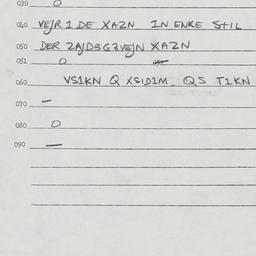 030 O
040 VEJR 1 DE XAZN 1N ENKE STIL
050 DER ZAJD3G3VEJN XAZN
051 O
060 VS1KN Q XS1D1M QS T1KN
070 —
080 O
090 —